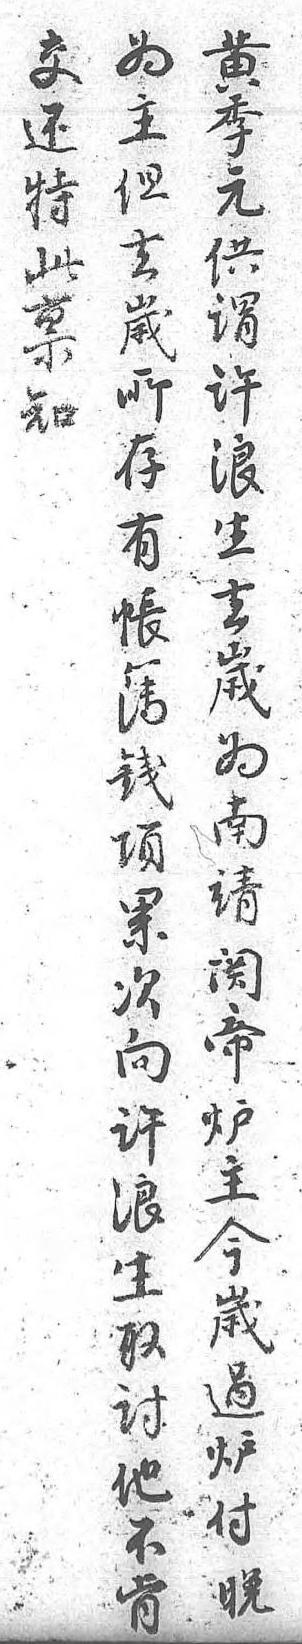 黄季元供谓许浪生去歲为南靖関帝炉主今歲過炉付晚
为主但去歲所存有帳簿銭項累次向许浪生取討他不肯
交还特此禀知